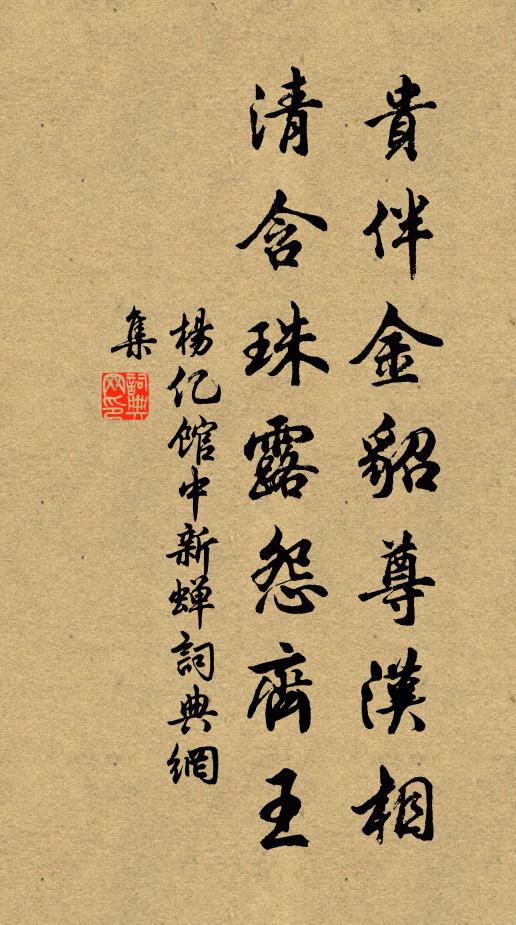 貴伴金貂尊漢相
清含珠露怨齊王
楊亿館中新蟬詞典網
集
詞典